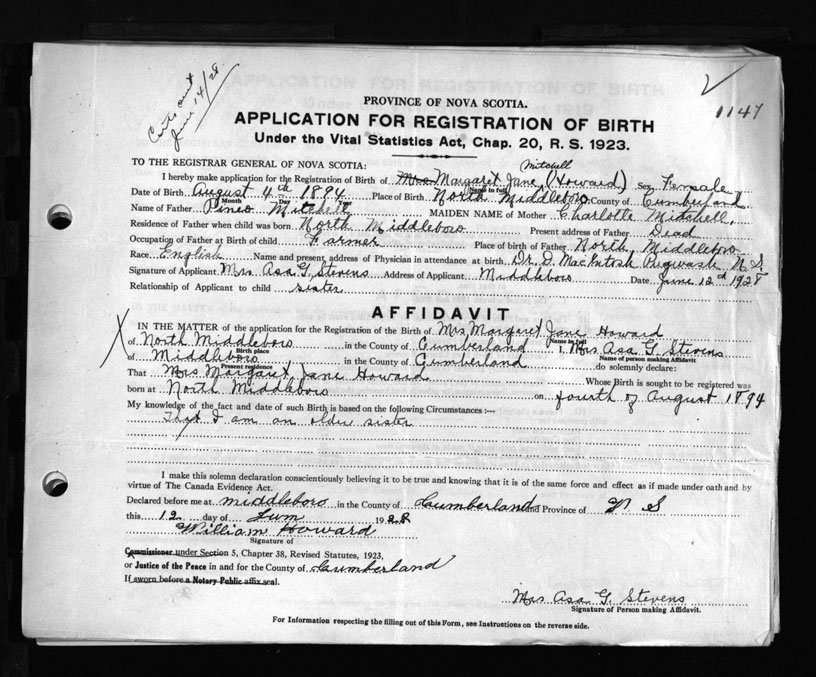 Certs sent
June 14/28.
1147
PROVINCE OF NOVA SCOTIA.
APPLICATION FOR REGISTRATION OF BIRTH
Under the Vital Statistics Act, Chap. 20, R. S. 1923.
TO THE REGISTRAR GENERAL OF NOVA SCOTIA:
Mitchell
I hereby make application for the Registration of Birth of Mrs. Margaret Jane (Howard) Sex Female
Name in full
Date of Birth August 4th 1894 Place of Birth North Middleboro County of Cumberland
Month Day
Name of Father Pineo MAIDEN NAME of Mother Charlotte Mitchell,
Residence of Father when child was born North Middleboro Present address of Father Dead
Occupation of Father at Birth of child Farmer Place of birth of Father North Middleboro
Race English Name and present address of Physician in attendance at birth Dr. D. MacIntosh Pugwash N S
Signature of Applicant Mrs Asa G. Stevens Address of Applicant Middleboro Date June 12 1928
Relationship of Applicant to child sister
AFFIDAVIT
IN THE MATTER of the application for the Registration of the Birth of Mrs Margaret Jane Howard
Name in full
of North Middleboro in the County of Cumberland I, Mrs Asa G Stevens
Birth place Name of person making Affidavit
of Middleboro in the County of Cumberland do solemnly declare:
Present residence
That Mrs Margaret Jane Howard Whose Birth is sought to be registered was
born at North Middleboro on fourth of August 1894
My knowledge of the fact and date of such Birth is based on the following Circumstances:—
That I am an older sister
I make this solemn declaration conscientiously believing it to be true and knowing that it is of the same force and effect as if made under oath and by
virtue of The Canada Evidence Act.
Declared before me at Middleboro in the County of Cumberland and Province of N S
this 12 day of 1928
William Howard
Signature of
Commissioner under Section 5, Chapter 38, Revised Statutes, 1923,
or Justice of the Peace in and for the County of Cumberland
If sworn before a Notary Public affix seal.
Mrs Asa G. Stevens
Signature of Person making Affidavit.
For Information respecting the filling out of this Form, see Instructions on the reverse side.